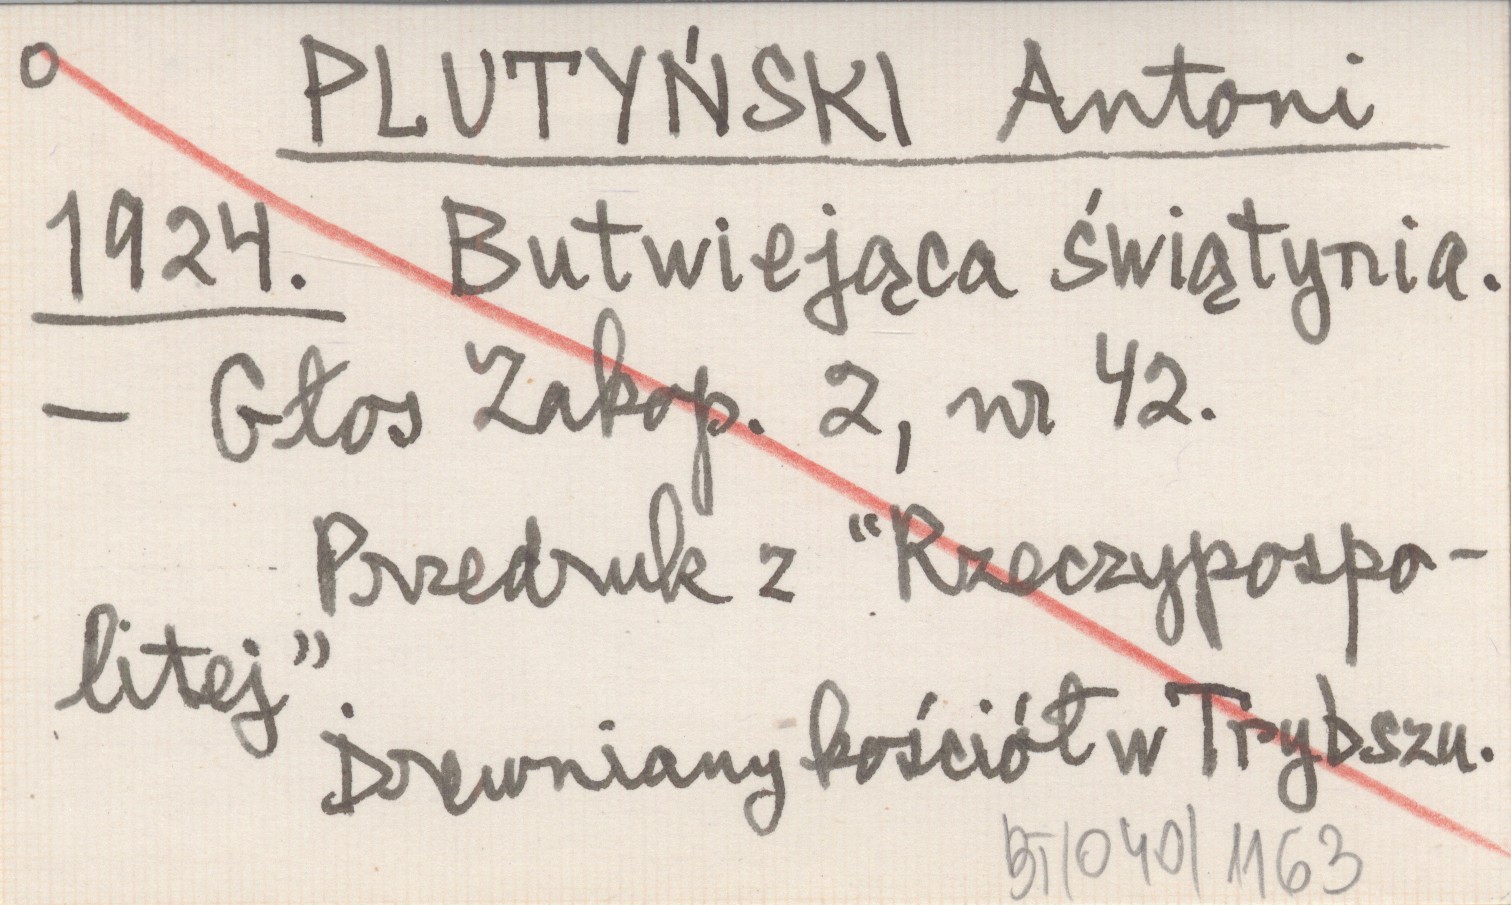 o PLUTYŃSKI Antoni
1924. Butwiejąca świątynia.
— Głos Zakop. 2, nr 42.
Przedruk z “Rzeczypospo-
litej”
Drewniany kościół w Trybszu.
BT/040/1163